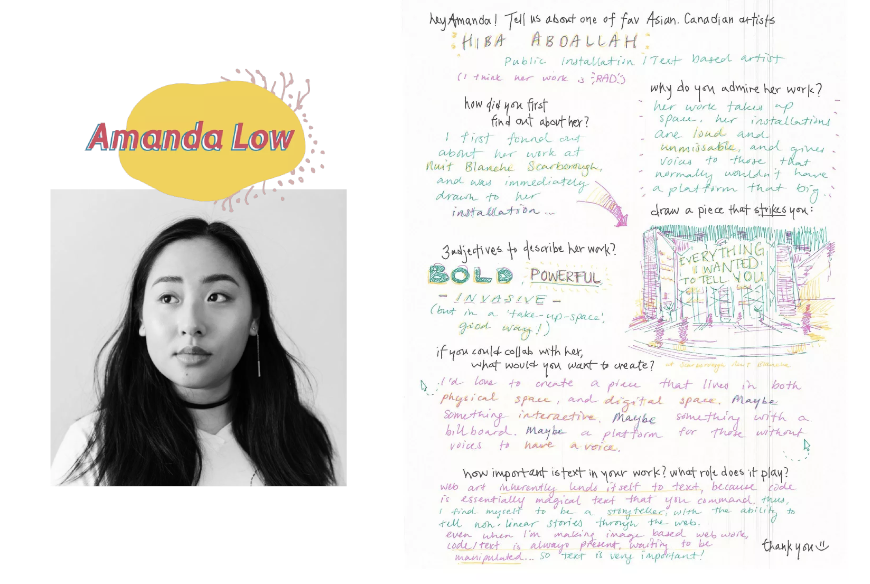 Amanda Low
hey Amanda! Tell us about one of fav Asian. Canadian artists
HIBA ABDALLAH
Public Installation / Text based artist
(I think her work is RAD!)
how did you first
find out about her?
I first found out
about her work at
Nuit Blanche Scarborough,
and was immediately
drawn to her
installation...
why do you admire her work?
her work takes up
space. her installations
are loud and
unmissable, and gives
voices to those that
normally wouldn't have
a platform that big...
draw a piece that strikes you:
EVERYTHING
I WANTED
TO TELL YOU
at Scarborough
3 adjectives to describe her work?
BOLD, POWERFUL
- INVASIVE -
(but in a 'take-up-space',
good way!)
if you could collab with her,
what would you want to create?
I'd love to create a piece that lives in both
physical space, and digital space. Maybe
something interactive. Maybe something with a
billboard. Maybe a platform for those without
voices to have a voice.
how important is text in your work? what role does it play?
web art inherently lends itself to text, because code
is essentially magical text that you command. thus,
i find myself to be a storyteller. with the ability to
tell non-linear stories through the web.
even when I'm making image based web work,
code/text is always present, waiting to be
manipulated... so text is very important!
thank you